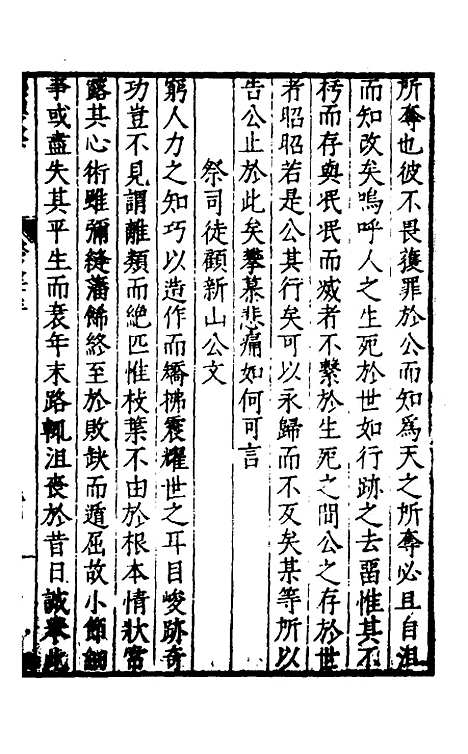 所奪也彼不畏獲罪於公而知爲天之所奪必且自沮
而知改矣嗚呼人之生死於世如行跡之去畱惟其不
朽而存與泯泯而滅者不繫於生死之間公之存於世
者昭昭若是公其行矣可以永歸而不反矣某等所以
告公止於此矣攀慕悲痛如何可言
祭司徒顧新山公文
窮人力之知巧以造作而矯拂衮耀世之耳目峻跡奇
功豈不見謂離類而絕匹惟枝葉不由於根本情狀常
露其心術雖彌縫藩餙終至於敗缺而遁屈故小節細
事或盡失其平生而衰年末路輒沮喪於昔日誠奉此